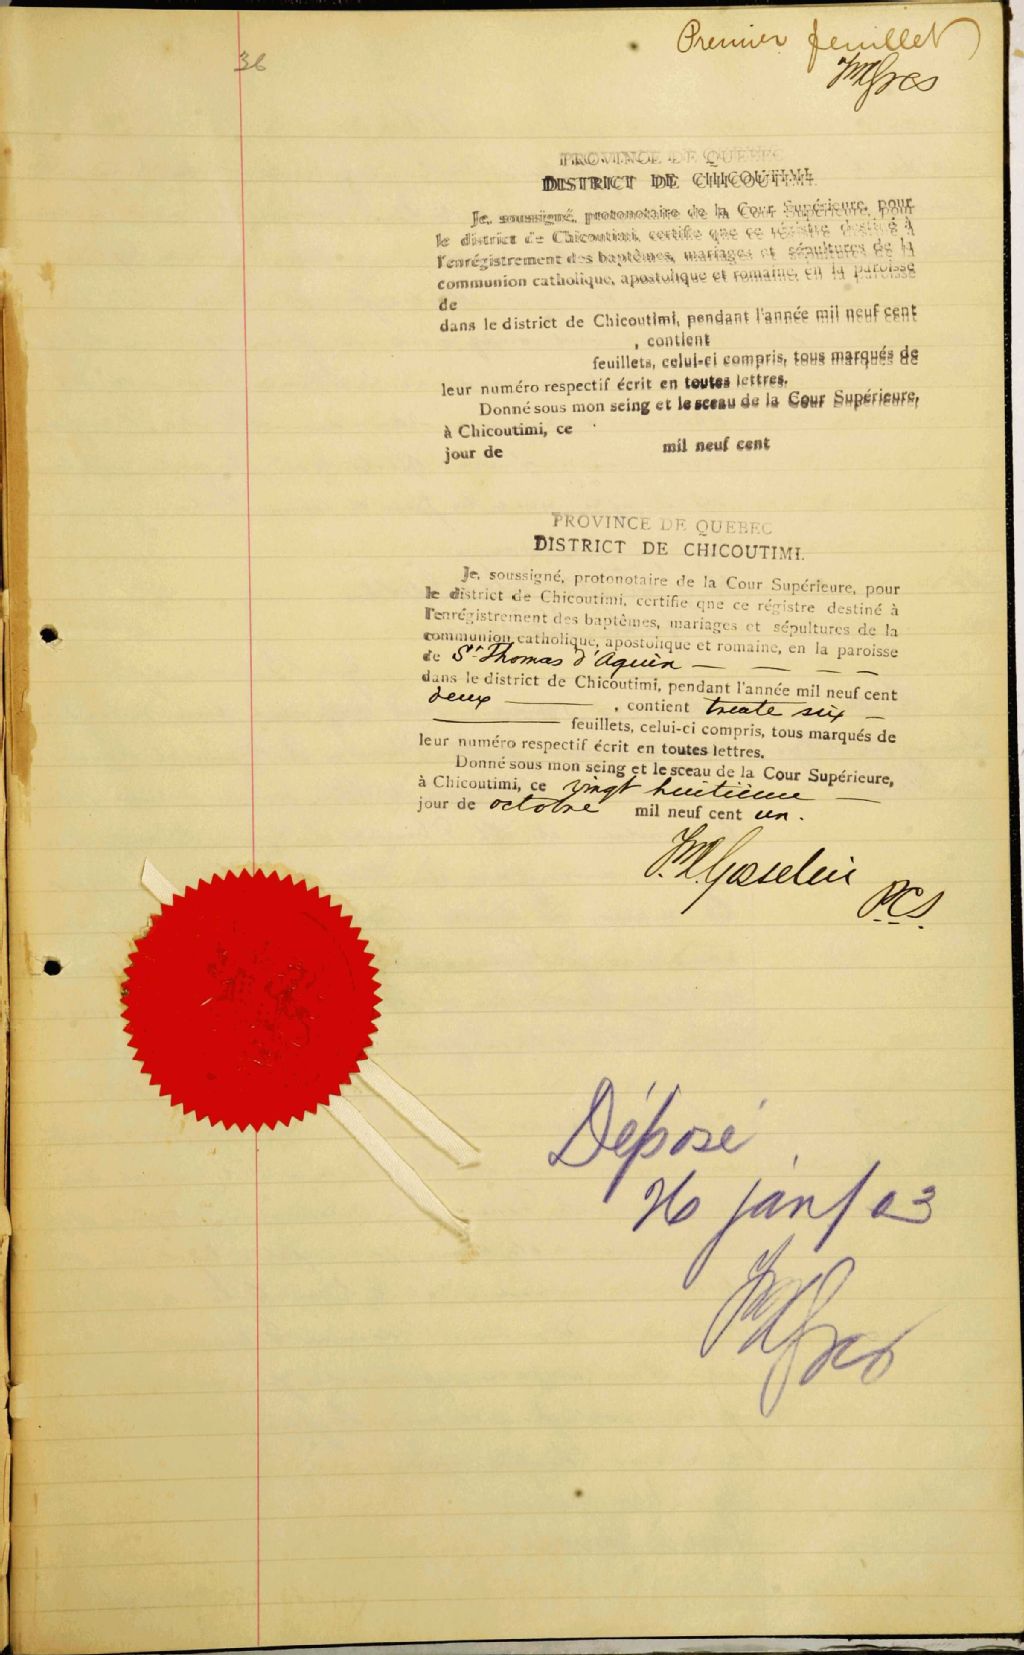 36
Premier feuillet
PROVINCE DE QUEBEC
DISTRICT DE CHICOUTIMI.
Je, soussigné, protonotaire de la Cour Supérieure, pour
le district de Chicoutimi, certifie que ce régistre destiné à
l'enrégistrement des baptêmes, mariages et sépultures de la
communion catholique, apostolique et romaine, en la paroisse
de
dans le district de Chicoutimi, pendant l'année mil neuf cent
, contient
feuillets, celui-ci compris, tous marqués de
leur numéro respectif écrit en toutes lettres.
Donné sous mon seing et le sceau de la Cour Supérieure,
à Chicoutimi, ce
jour de mil neuf cent
PROVINCE DE QUEBEC
DISTRICT DE CHICOUTIMI.
Je, soussigné, protonotaire de la Cour Supérieure, pour
le district de Chicoutimi, certifie que ce régistre destiné à
l'enrégistrement des baptêmes, mariages et sépultures de la
communion catholique, apostolique et romaine, en la paroisse
de St Thomas d'Aquin — — — —
dans le district de Chicoutimi, pendant l'année mil neuf cent
deux — , contient trente six —
— feuillets, celui-ci compris, tous marqués de
leur numéro respectif écrit en toutes lettres.
Donné sous mon seing et le sceau de la Cour Supérieure,
à Chicoutimi, ce vingt huitième —
jour de octobre mil neuf cent un.
Gosselin
P.C.S.
Déposé
26 janv 03